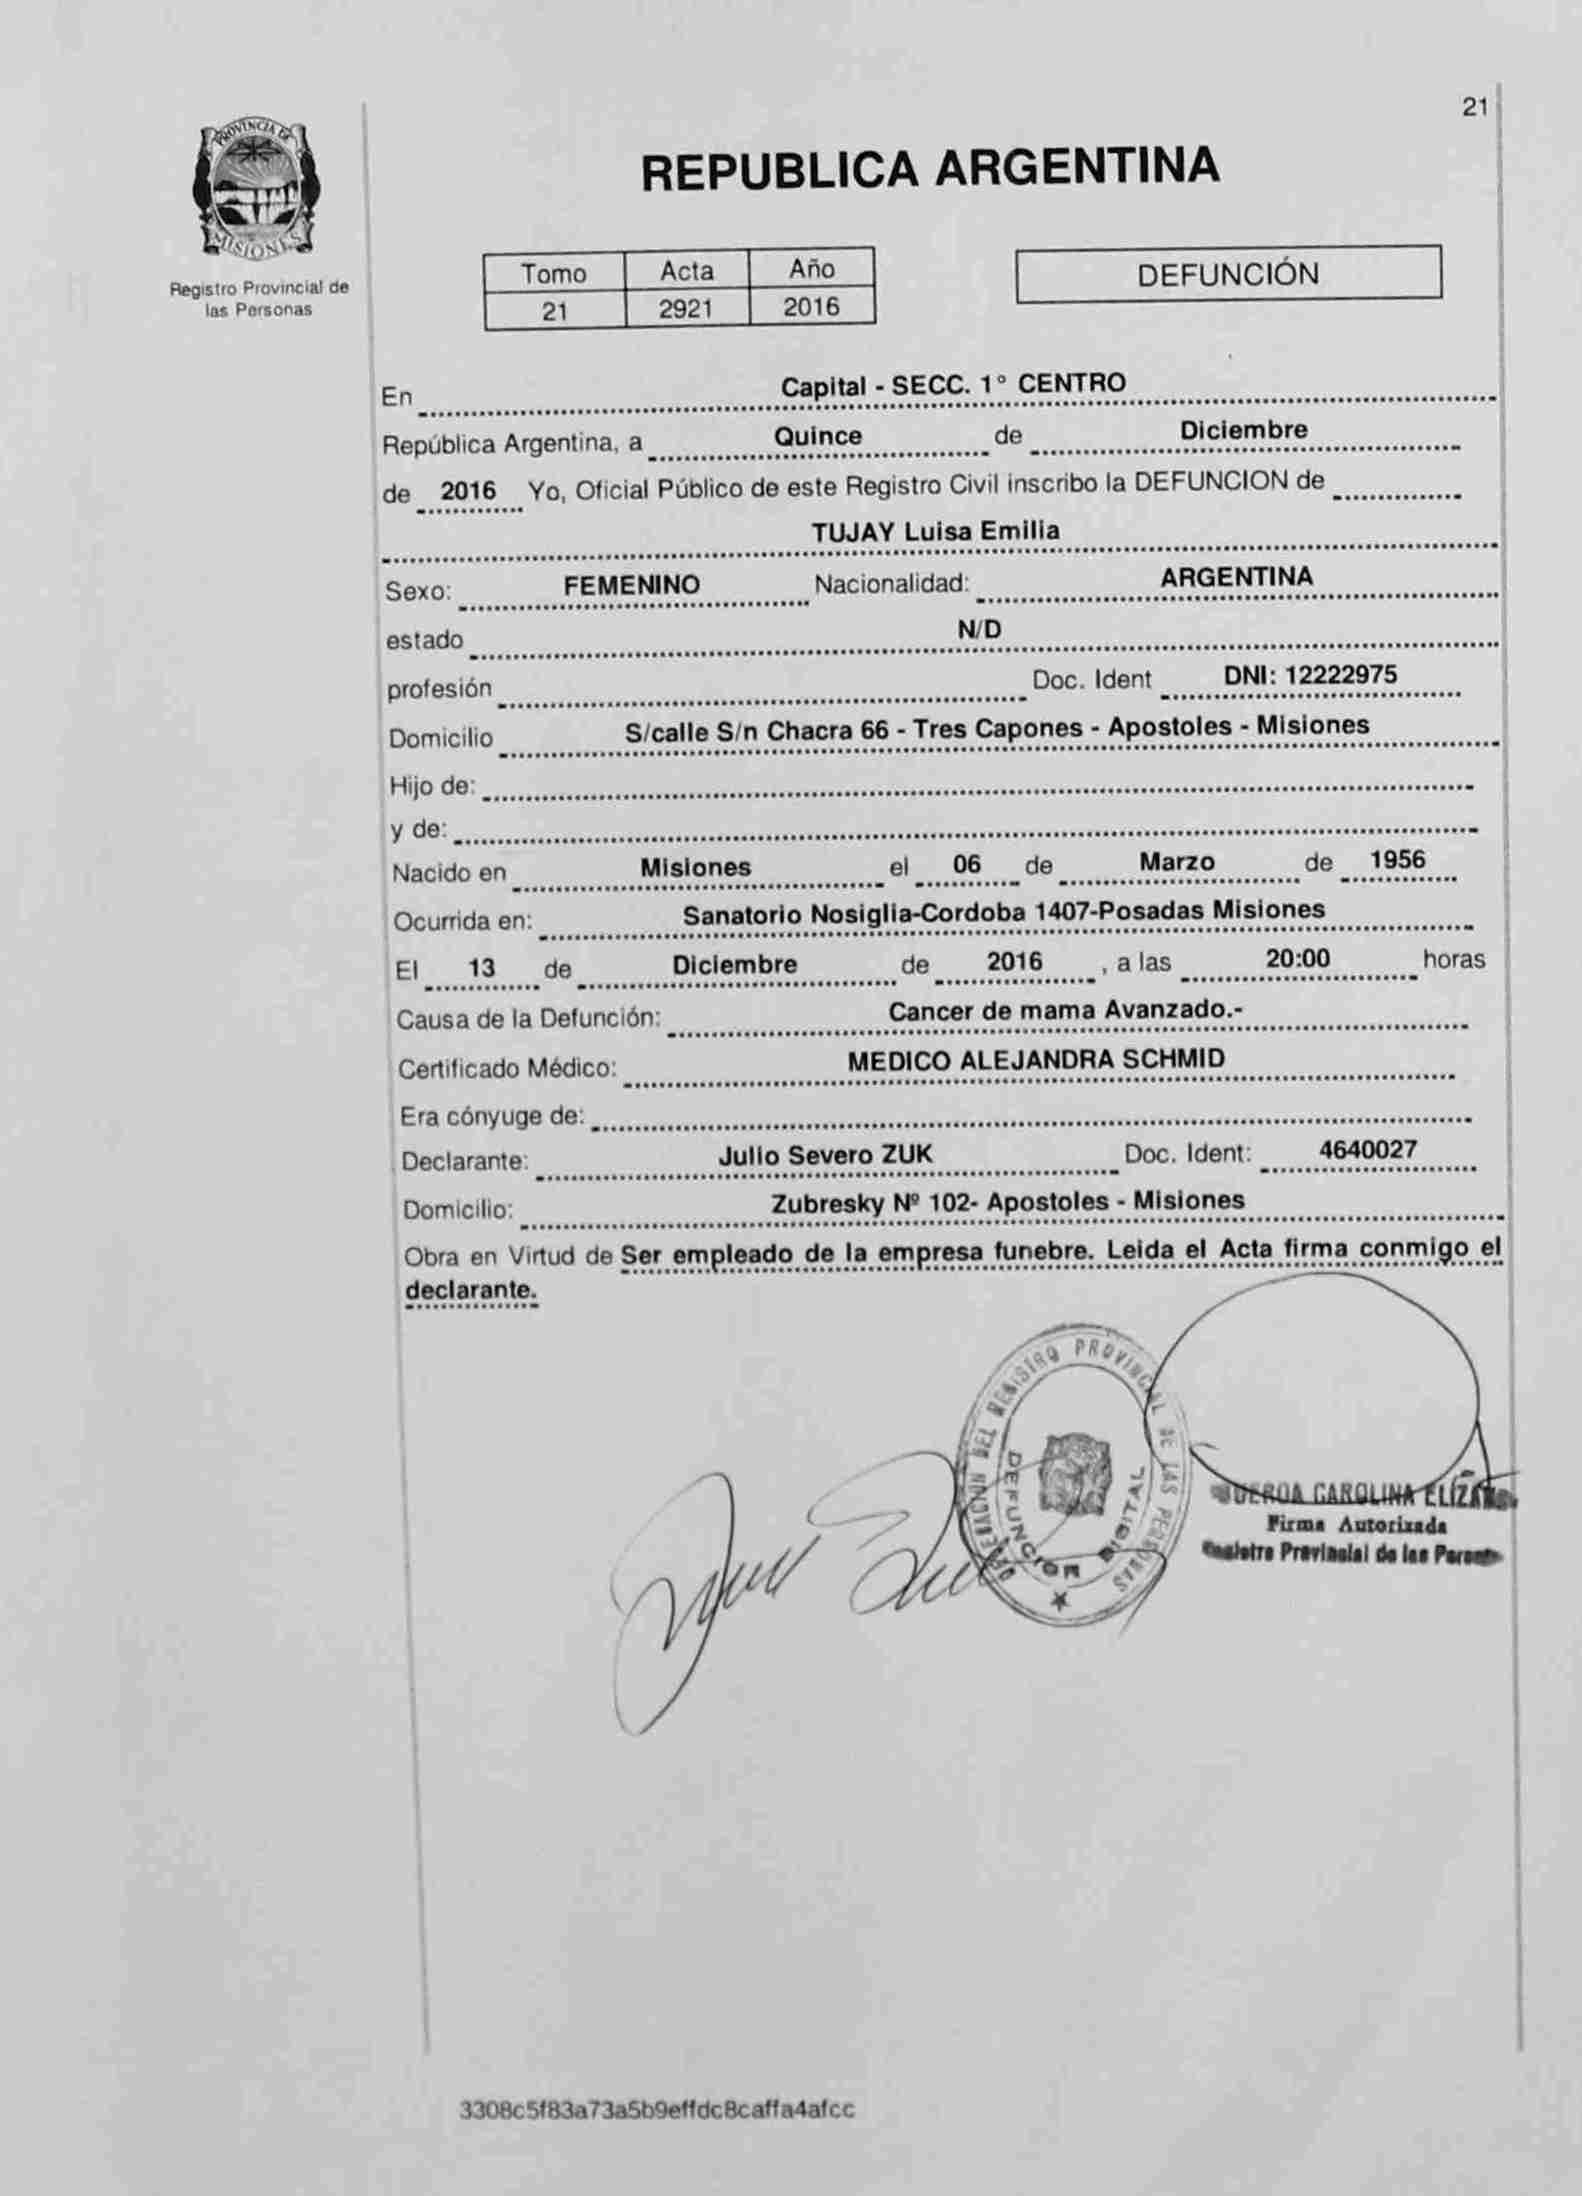 21
PROVINCIA DE
MISIONES
Registro Provincial de
las Personas
REPUBLICA ARGENTINA
Tomo Acta Año
21 2921 2016
DEFUNCIÓN
En Capital - SECC. 1° CENTRO
República Argentina, a Quince de Diciembre
de 2016 Yo, Oficial Público de este Registro Civil inscribo la DEFUNCION de
TUJAY Luisa Emilia
Sexo: FEMENINO Nacionalidad: ARGENTINA
estado N/D
profesión Doc. Ident DNI: 12222975
Domicilio S/calle S/n Chacra 66 - Tres Capones - Apostoles - Misiones
Hijo de:
y de:
Nacido en Misiones el 06 de Marzo de 1956
Ocurrida en: Sanatorio Nosiglia-Cordoba 1407-Posadas Misiones
El 13 de Diciembre de 2016 , a las 20:00 horas
Causa de la Defunción: Cancer de mama Avanzado.-
Certificado Médico: MEDICO ALEJANDRA SCHMID
Era cónyuge de:
Declarante: Julio Severo ZUK Doc. Ident: 4640027
Domicilio: Zubresky Nº 102- Apostoles - Misiones
Obra en Virtud de Ser empleado de la empresa funebre. Leida el Acta firma conmigo el
declarante.
DEL REGISTRO PROVINCIAL DE LAS PERSONAS
DEFUNCION DIGITAL
CAROLINA
Firma Autorizada
Provincial de las
3308c5f83a73a5b9effdc8caffa4afcc